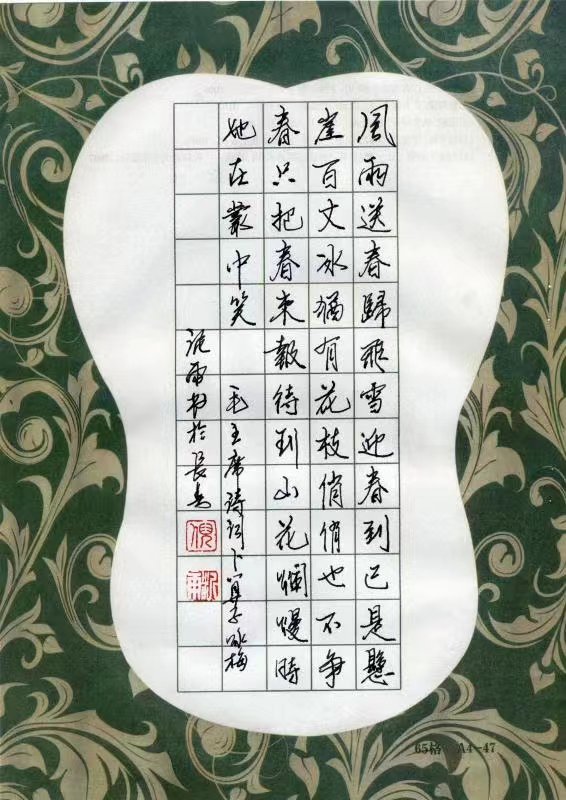 風雨送春歸飛雪迎春到已是懸
崖百丈冰猶有花枝俏俏也不争
春只把春來報待到山花爛熳時
她在叢中笑 毛主席詩詞卜算子咏梅
雨书於長安
65格 A4-47